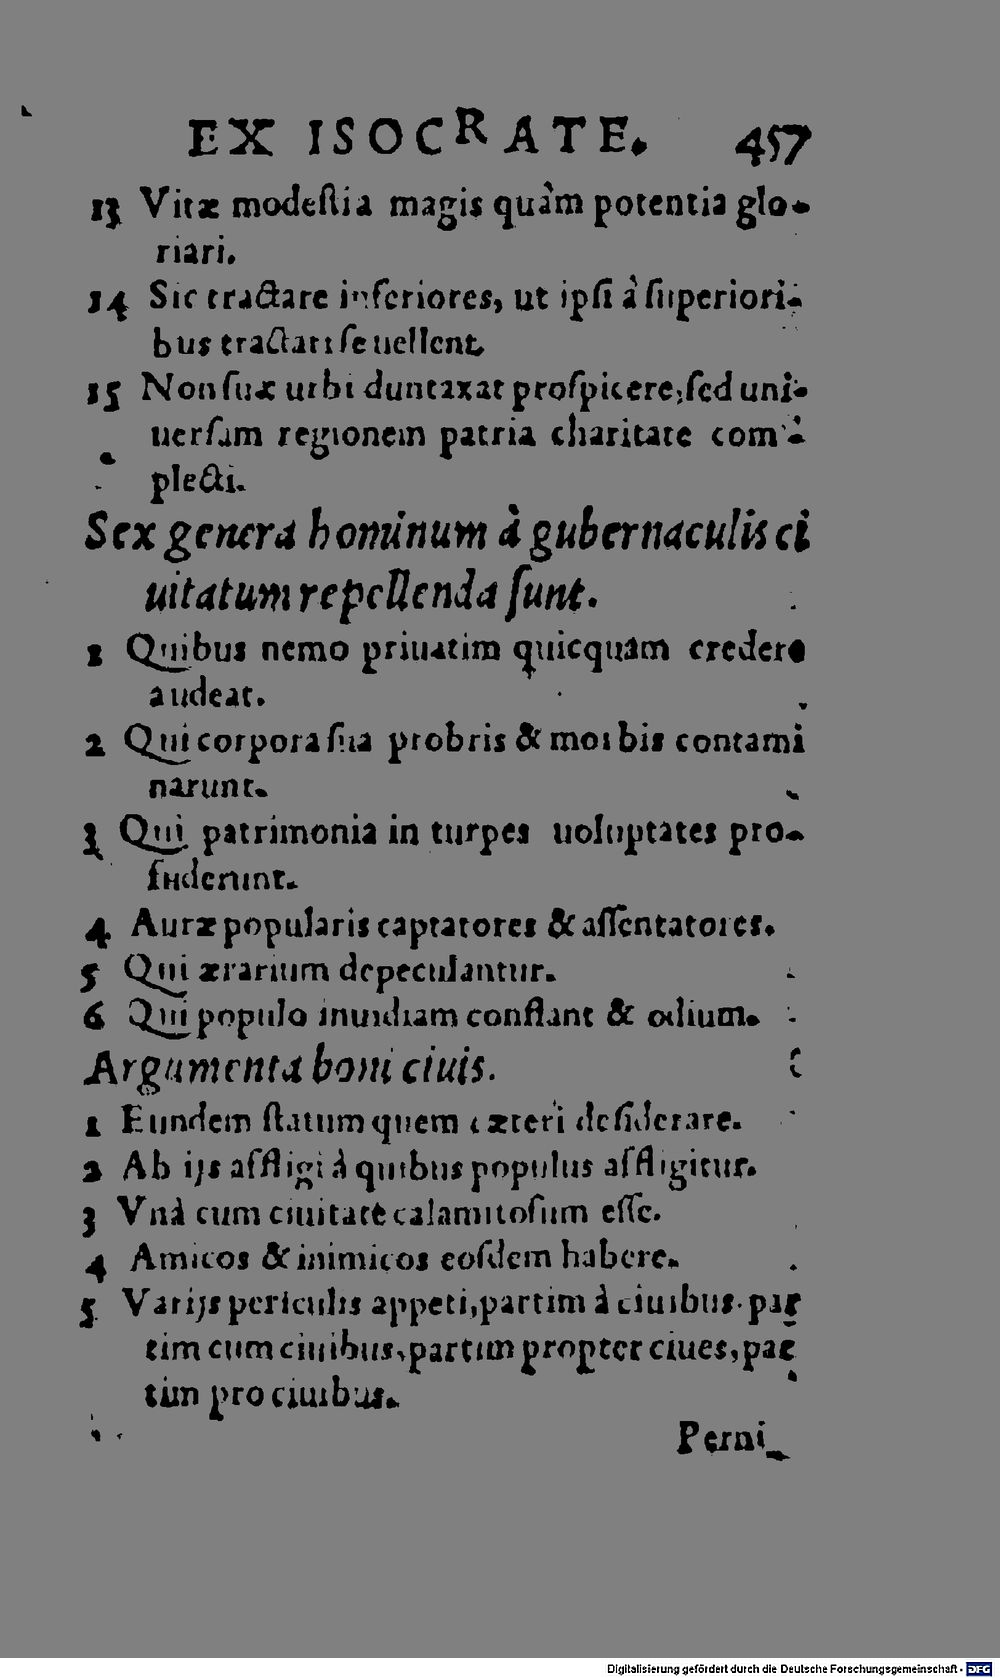 EX ISOCRATE. 457
13 Vitæ modeſtia magis quàm potentia glo-
riari.
14 Sic tractare inferiores, ut ipſi à ſuperiori-
bus tractari ſe uellent.
15 Non ſuæ urbi duntaxat proſpicere, ſed uni-
uerſam regionem patria charitate com-
plecti.
Sex genera hominum à gubernaculis ci
uitatum repellenda ſunt.
1 Quibus nemo priuatim quicquam credere
audeat.
2 Qui corpora ſua probris & morbis contami
narunt.
3 Qui patrimonia in turpes uoluptates pro-
fuderunt.
4 Auræ popularis captatores & aſſentatores.
5 Qui ærarium depeculantur.
6 Qui populo inuidiam conflant & odium.
Argumenta boni ciuis.
1 Eundem ſtatum quem cæteri deſiderare.
2 Ab ijs affligi à quibus populus affligitur.
3 Vnà cum ciuitate calamitoſum eſſe.
4 Amicos & inimicos eoſdem habere.
5 Varijs periculis appeti, partim à ciuibus. par
tim cum ciuibus, partim propter ciues, par
tim pro ciuibus.
Perni-
Digitalisierung gefördert durch die Deutsche Forschungsgemeinschaft - DFG